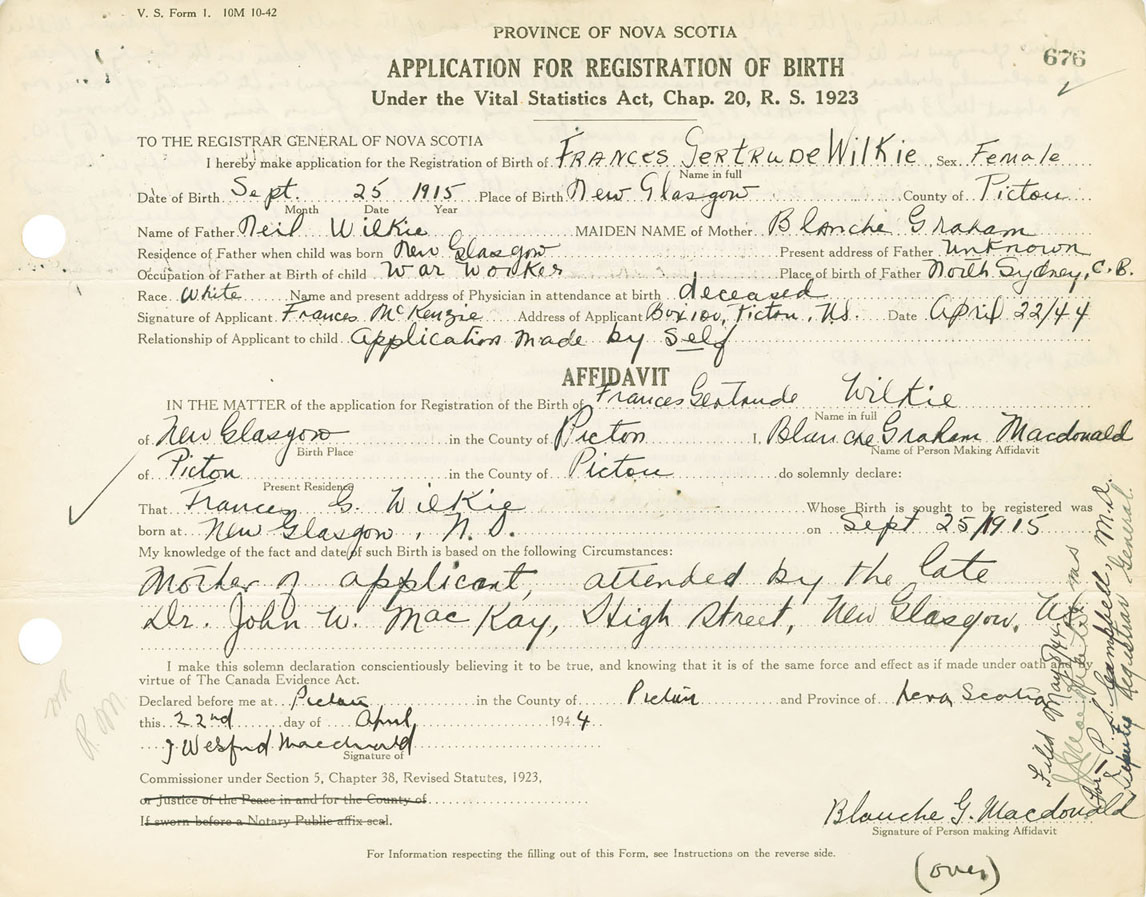 V. S. Form 1. 10M 10-42
PROVINCE OF NOVA SCOTIA
676
APPLICATION FOR REGISTRATION OF BIRTH
Under the Vital Statistics Act, Chap. 20, R. S. 1923
TO THE REGISTRAR GENERAL OF NOVA SCOTIA
I hereby make application for the Registration of Birth of FRANCES GERTRUDE WILKIE Sex Female
Name in full
Date of Birth Sept. 25 1915 Place of Birth New Glasgow County of Pictou
Month Date Year
Name of Father Neil Wilkie MAIDEN NAME of Mother Blanche Graham
Residence of Father when child was born New Glasgow Present address of Father Unknown
Occupation of Father at Birth of child War Worker Place of birth of Father North Sydney, C. B.
Race White Name and present address of Physician in attendance at birth deceased
Signature of Applicant Frances McKenzie Address of Applicant Box 100, Pictou, N.S. Date April 22/44
Relationship of Applicant to child Application made by Self
AFFIDAVIT
IN THE MATTER of the application for Registration of the Birth of Frances Gertrude Wilkie
Name in full
of New Glasgow in the County of Pictou I, Blanche Graham Macdonald
Birth Place Name of Person Making Affidavit
of Pictou in the County of Pictou do solemnly declare:
Present Residence
That Frances G. Wilkie Whose Birth is sought to be registered was
born at New Glasgow, N.S. on Sept 25/1915
My knowledge of the fact and date of such Birth is based on the following Circumstances:
Mother of applicant, attended by the late
Dr. John W. MacKay, High Street, New Glasgow, N.S.
I make this solemn declaration conscientiously believing it to be true, and knowing that it is of the same force and effect as if made under oath and by
virtue of The Canada Evidence Act.
Declared before me at Pictou in the County of Pictou and Province of Nova Scotia
this 22nd day of April, 1944
J Welsford Macdonald
Signature of
Commissioner under Section 5, Chapter 38, Revised Statutes, 1923,
or Justice of the Peace in and for the County of
If sworn before a Notary Public affix seal.
Blanche G. Macdonald
Signature of Person making Affidavit
For Information respecting the filling out of this Form, see Instructions on the reverse side.
(over)
Filed May
for P. S. Campbell, M.D.
Deputy Registrar General